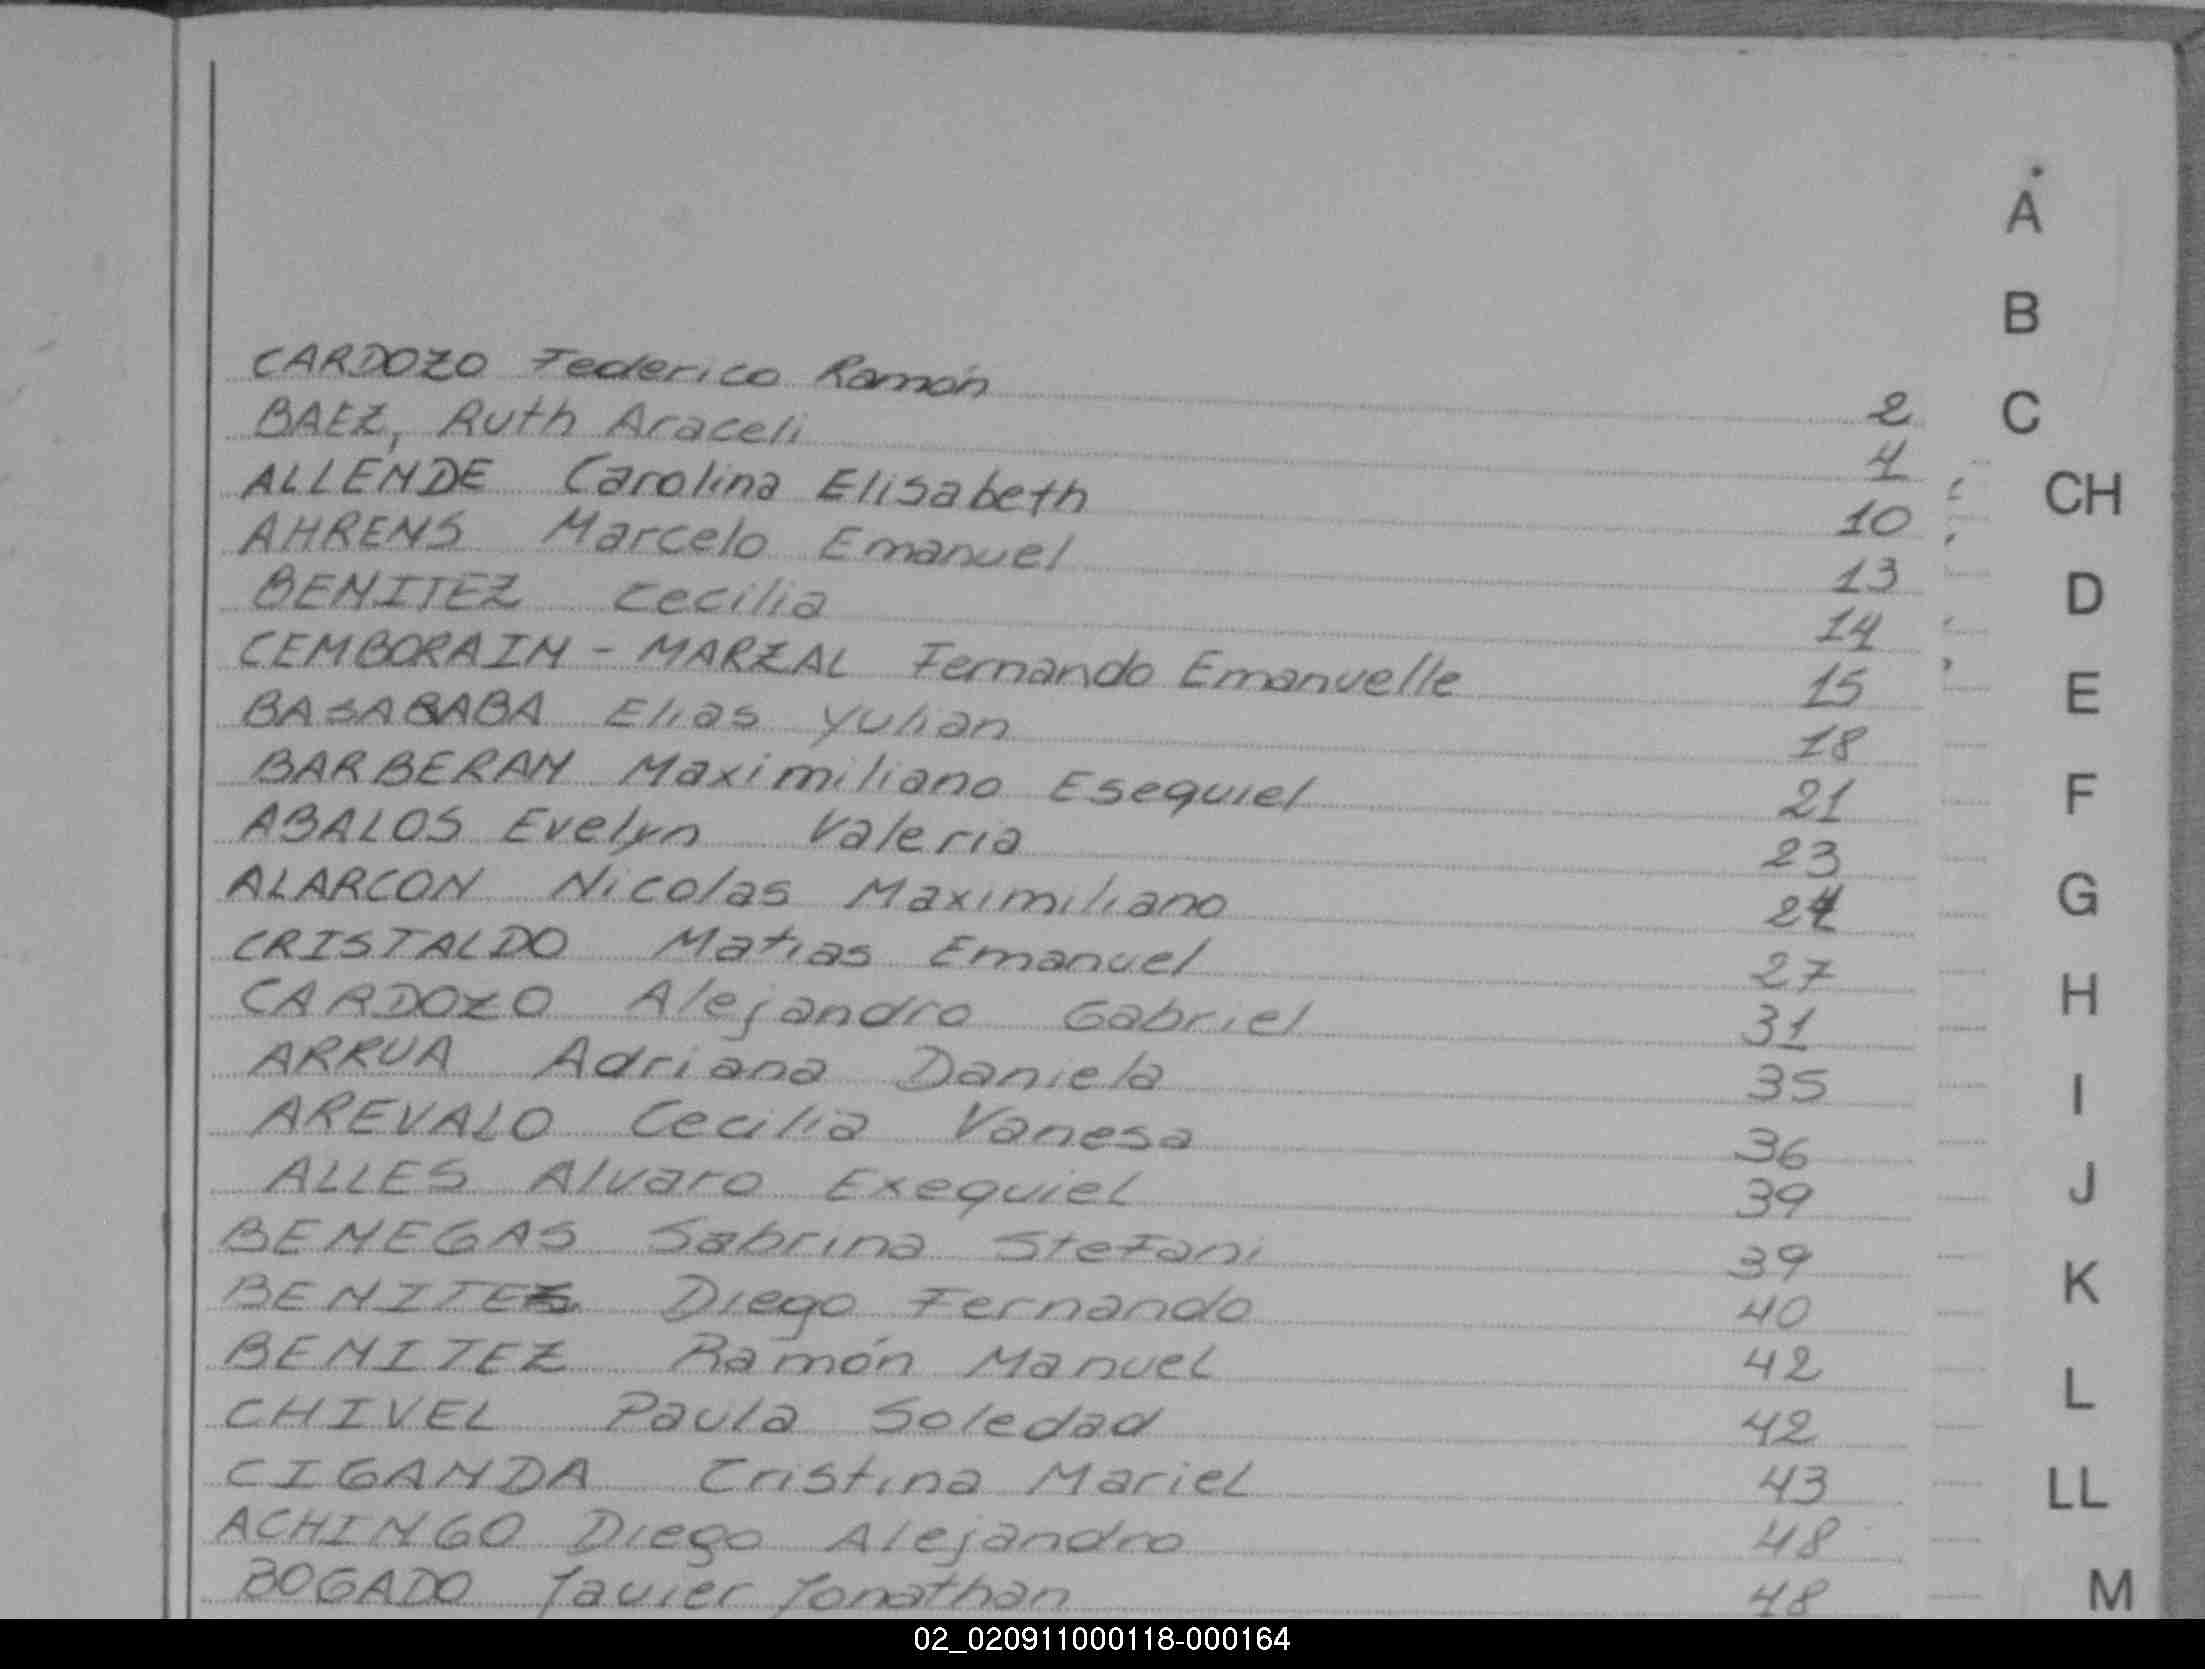 CARDOZO Federico Ramón 2
BAEZ, Ruth Araceli 4
ALLENDE Carolina Elisabeth 10
AHRENS Marcelo Emanuel 13
BENITEZ Cecilia 14
CEMBORAIN - MARZAL Fernando Emanuelle 15
BASABABA Elias Yulian 18
BARBERAN Maximiliano Esequiel 21
ABALOS Evelyn Valeria 23
ALARCON Nicolas Maximiliano 24
CRISTALDO Matias Emanuel 27
CARDOZO Alejandro Gabriel 31
ARRUA Adriana Daniela 35
AREVALO Cecilia Vanesa 36
ALLES Alvaro Exequiel 39
BENEGAS Sabrina Stefani 39
BENITEZ Diego Fernando 40
BENITEZ Ramón Manuel 42
CHIVEL Paula Soledad 42
CIGANDA Cristina Mariel 43
ACHINGO Diego Alejandro 48
BOGADO Javier Jonathan 48
A
B
C
CH
D
E
F
G
H
I
J
K
L
LL
M
02_020911000118-000164